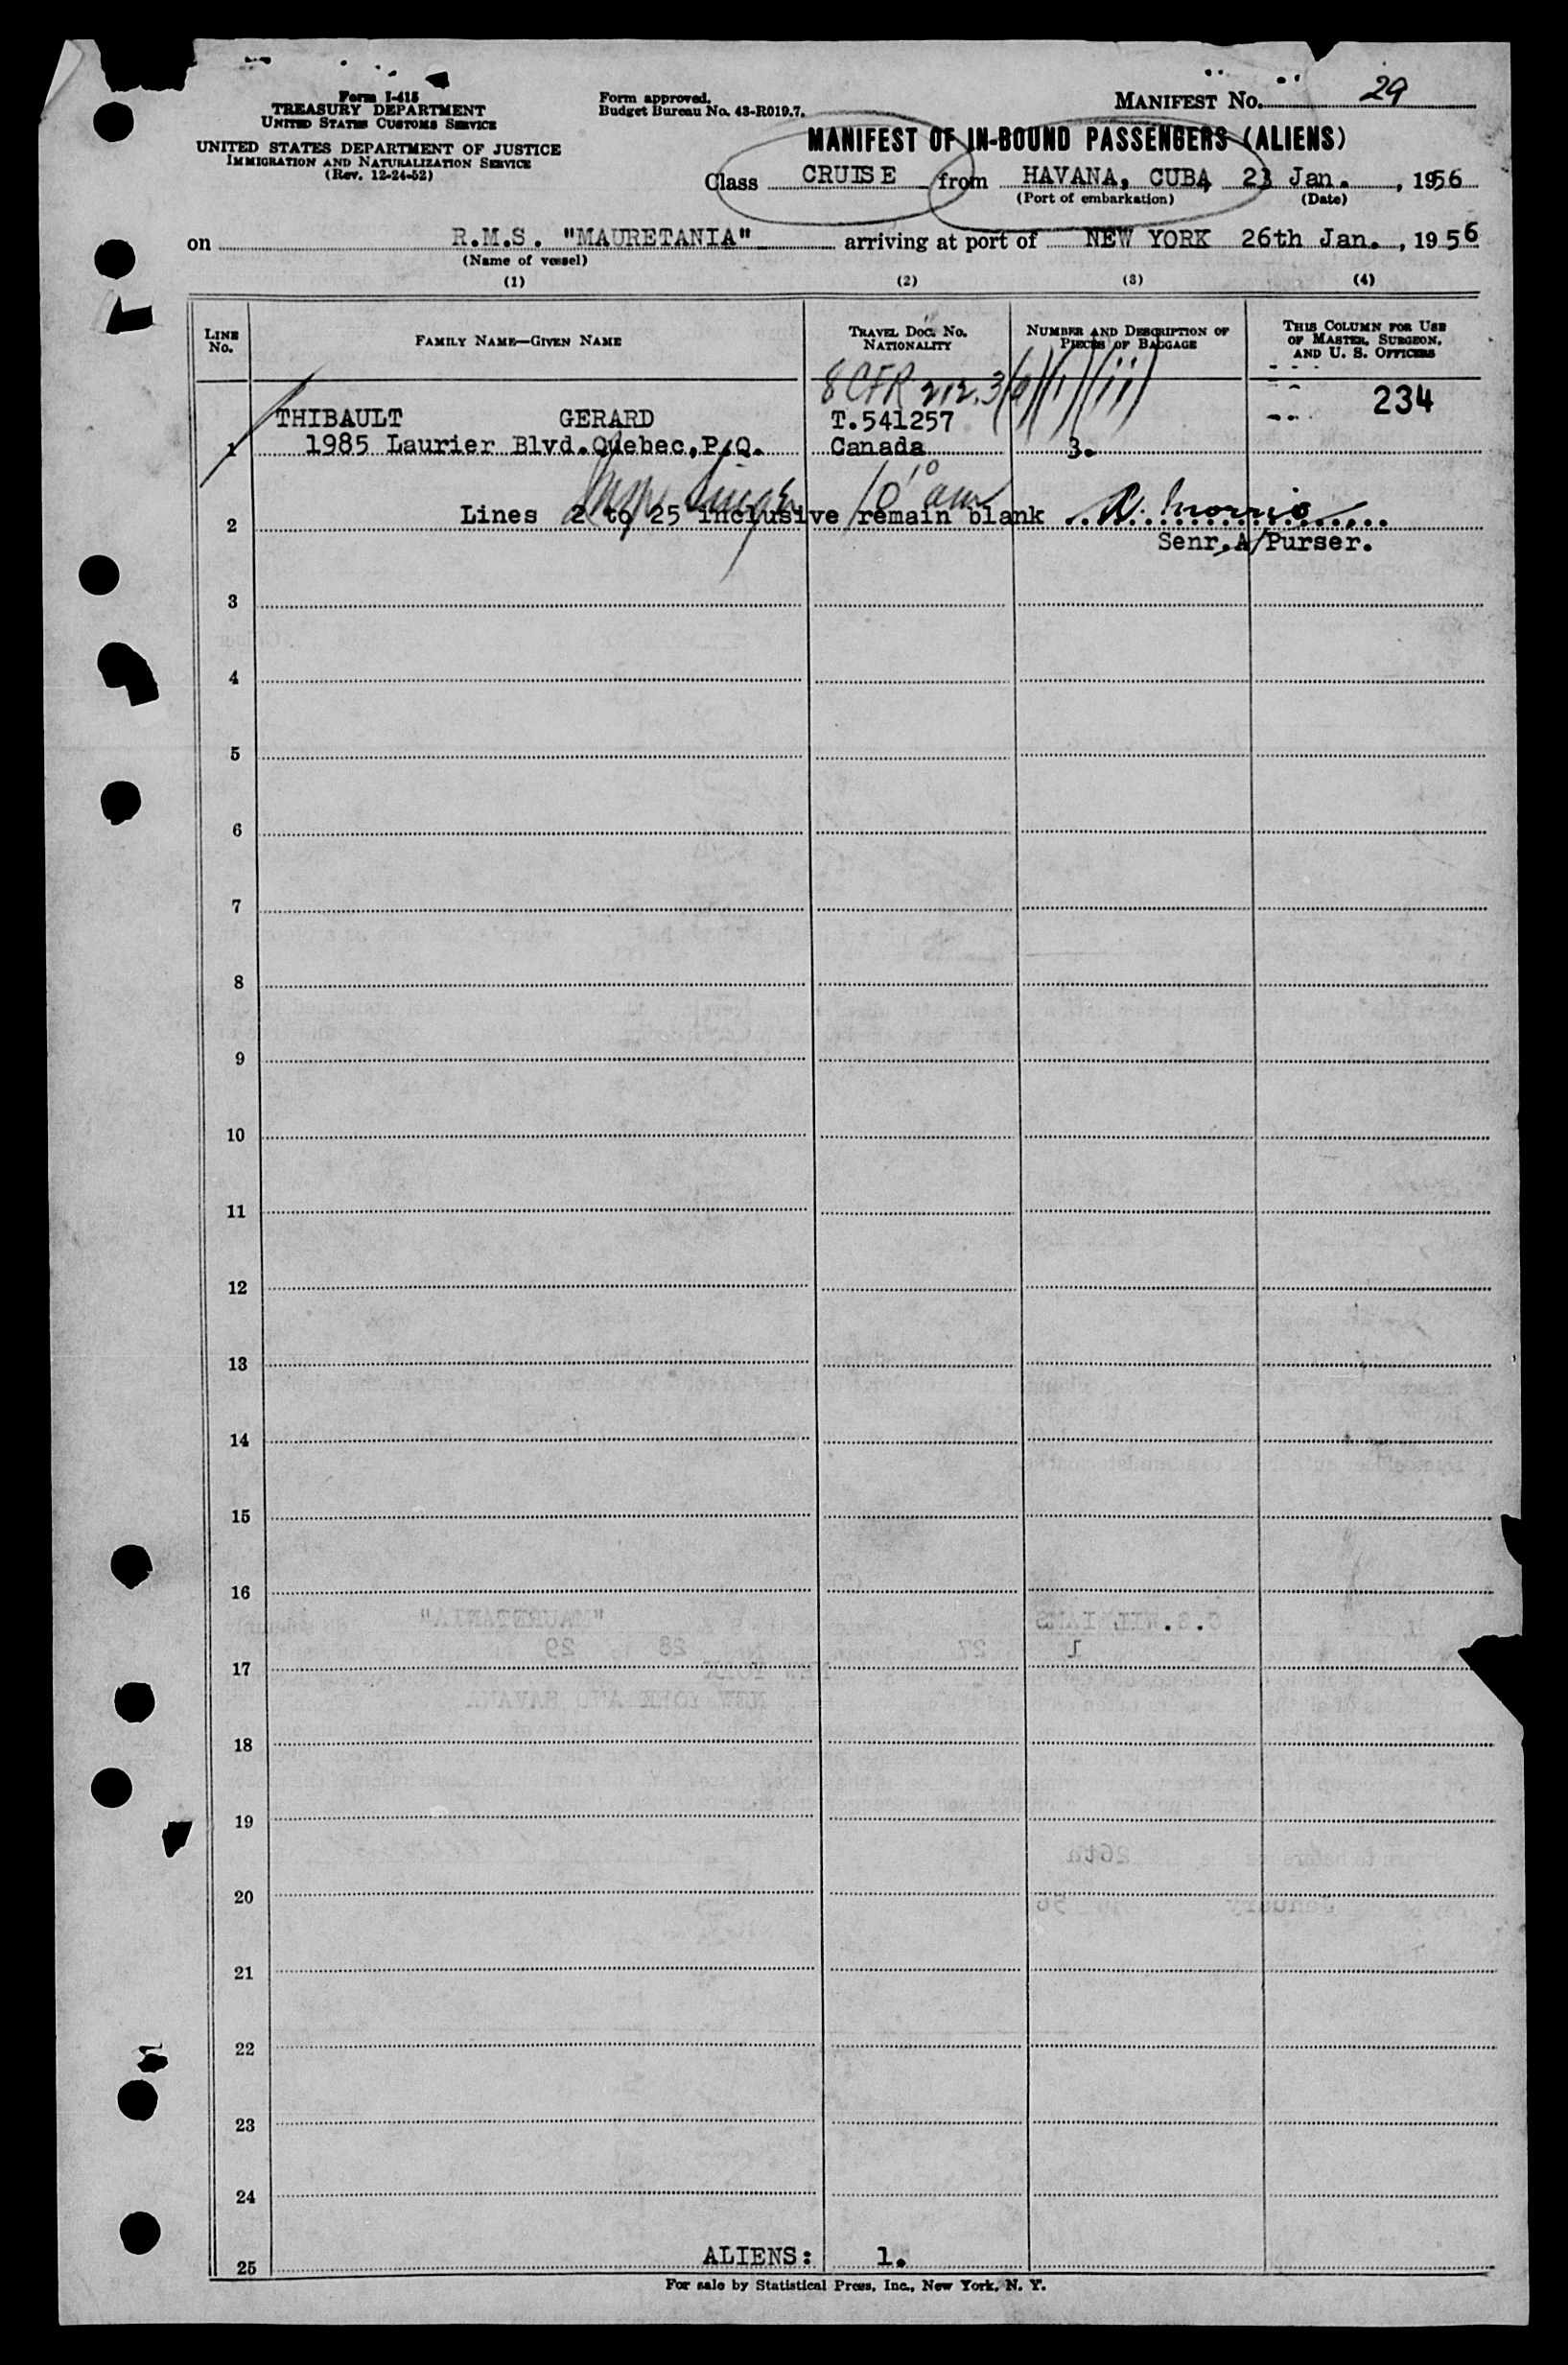 Form I-415
TREASURY DEPARTMENT
UNITED STATES CUSTOMS SERVICE
UNITED STATES DEPARTMENT OF JUSTICE
IMMIGRATION AND NATURALIZATION SERVICE
(Rev. 12-24-52)
Form approved.
Budget Bureau No. 43-R019.7.
MANIFEST No. 29
MANIFEST OF IN-BOUND PASSENGERS (ALIENS)
Class CRUISE from HAVANA, CUBA, 23 Jan., 1956
(Port of embarkation) (Date)
on R.M.S. "MAURETANIA" arriving at port of NEW YORK 26th Jan., 1956
(Name of vessel)
(1) (2) (3) (4)
LINE No. FAMILY NAME—GIVEN NAME TRAVEL DOC. No. NATIONALITY NUMBER AND DESCRIPTION OF PIECES OF BAGGAGE THIS COLUMN FOR USE OF MASTER, SURGEON, AND U. S. OFFICERS
8 CFR 212.3
THIBAULT GERARD T.541257 234
1 1985 Laurier Blvd.Quebec,P.Q. Canada 3.
10 am
2 Lines 2 to 25 inclusive remain blank Morris
Senr.A/Purser.
3
4
5
6
7
8
9
10
11
12
13
14
15
16
17
18
19
20
21
22
23
24
25 ALIENS: 1.
For sale by Statistical Press, Inc., New York, N. Y.